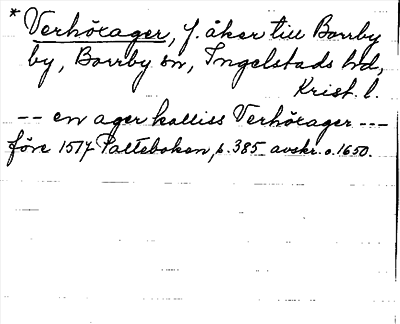 * Verhöxager, f. åker till Borrby
by, Borrby sn, Ingelstads hd,
Krist. l.
-- en ager kalliss Verhöxager ---
före 1517 Palteboken, s. 385 avskr. o. 1650.